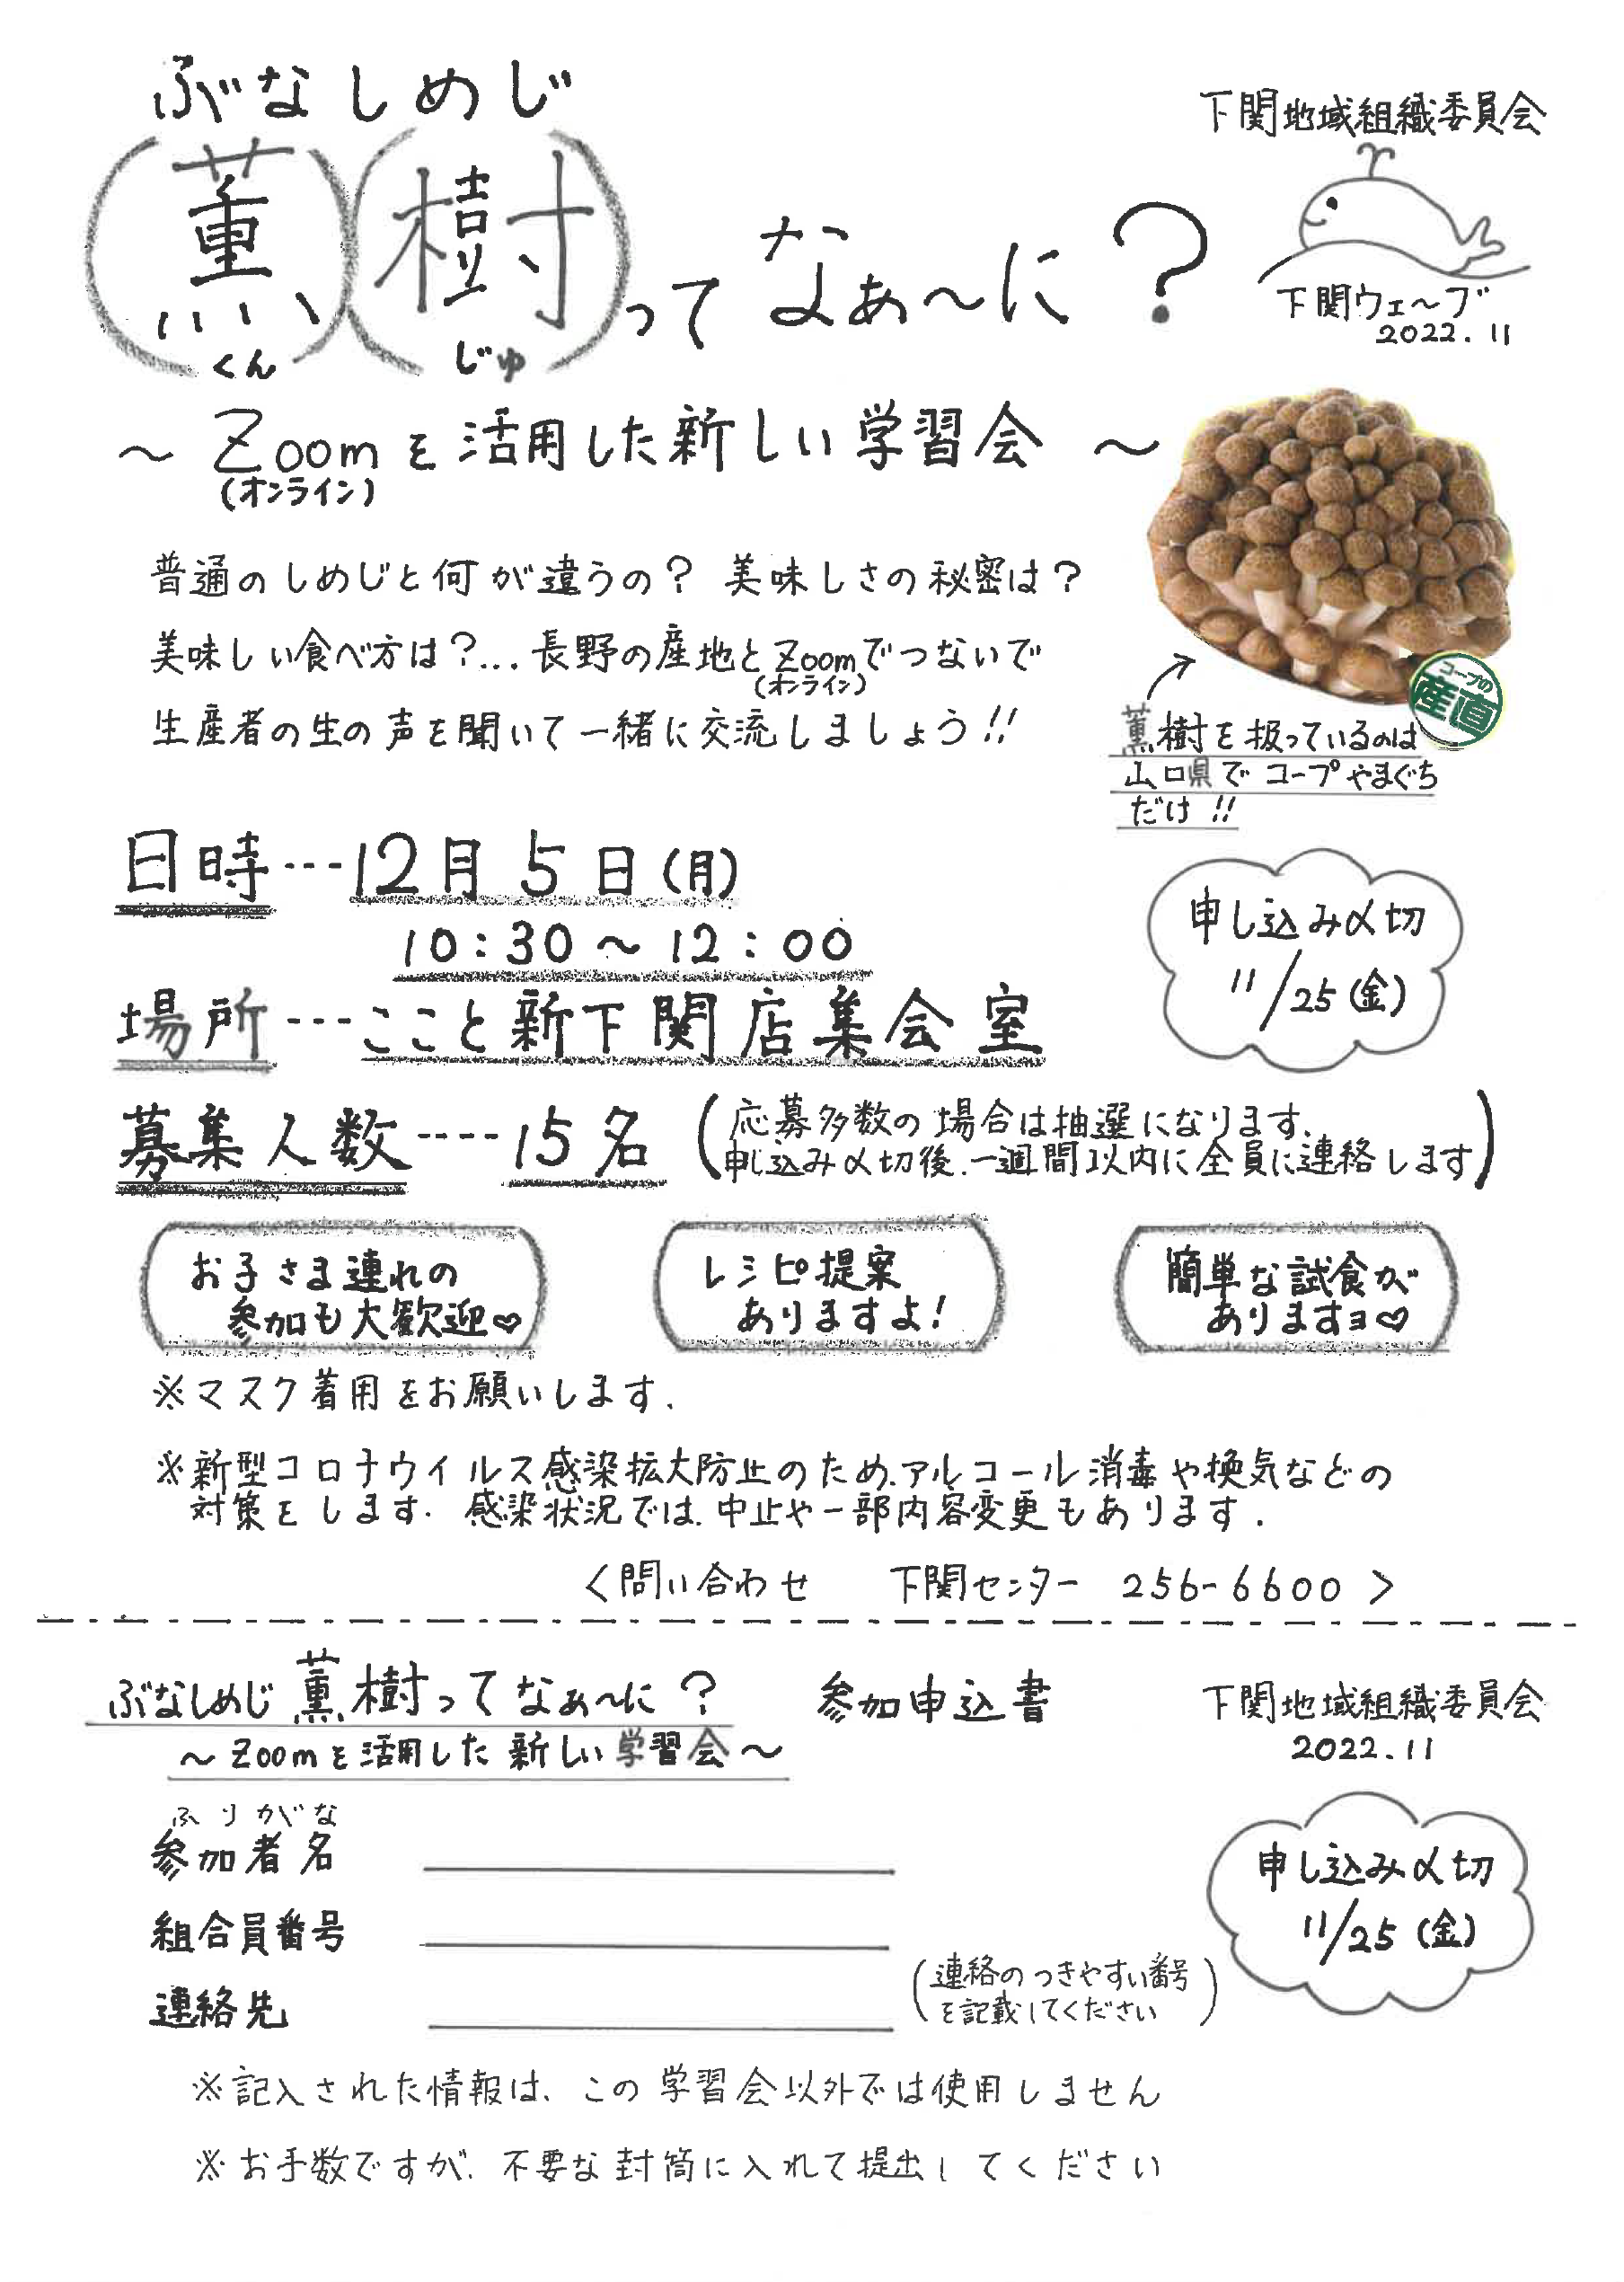 ぶなしめじ
下関地域組織委員会
薫樹ってなぁ～に？
くん じゅ
下関ウェ～ブ
2022.11
～ Zoomを活用した新しい学習会 ～
(オンライン)
普通のしめじと何が違うの？ 美味しさの秘密は？
美味しい食べ方は？...長野の産地とZoomでつないで
(オンライン)
生産者の生の声を聞いて一緒に交流しましょう!!
コープの
産直
薫樹を扱っているのは
山口県でコープやまぐち
だけ!!
日時---12月5日(月)
10:30～12:00
申し込み〆切
11/25(金)
場所---ここと新下関店集会室
募集人数----15名
(応募多数の場合は抽選になります.
申し込み〆切後.一週間以内に全員に連絡します)
お子さま連れの
参加も大歓迎♡
レシピ提案
ありますよ!
簡単な試食が
ありますョ♡
※マスク着用をお願いします.
※新型コロナウイルス感染拡大防止のため.アルコール消毒や換気などの
対策をします. 感染状況では.中止や一部内容変更もあります.
<問い合わせ 下関センター 256-6600>
ぶなしめじ薫樹ってなぁ～に？ 参加申込書
下関地域組織委員会
～Zoomを活用した新しい学習会～
2022.11
ふりがな
参加者名
申し込み〆切
11/25(金)
組合員番号
連絡先
(連絡のつきやすい番号
を記載してください)
※記入された情報は、この学習会以外では使用しません
※お手数ですが、不要な封筒に入れて提出してください